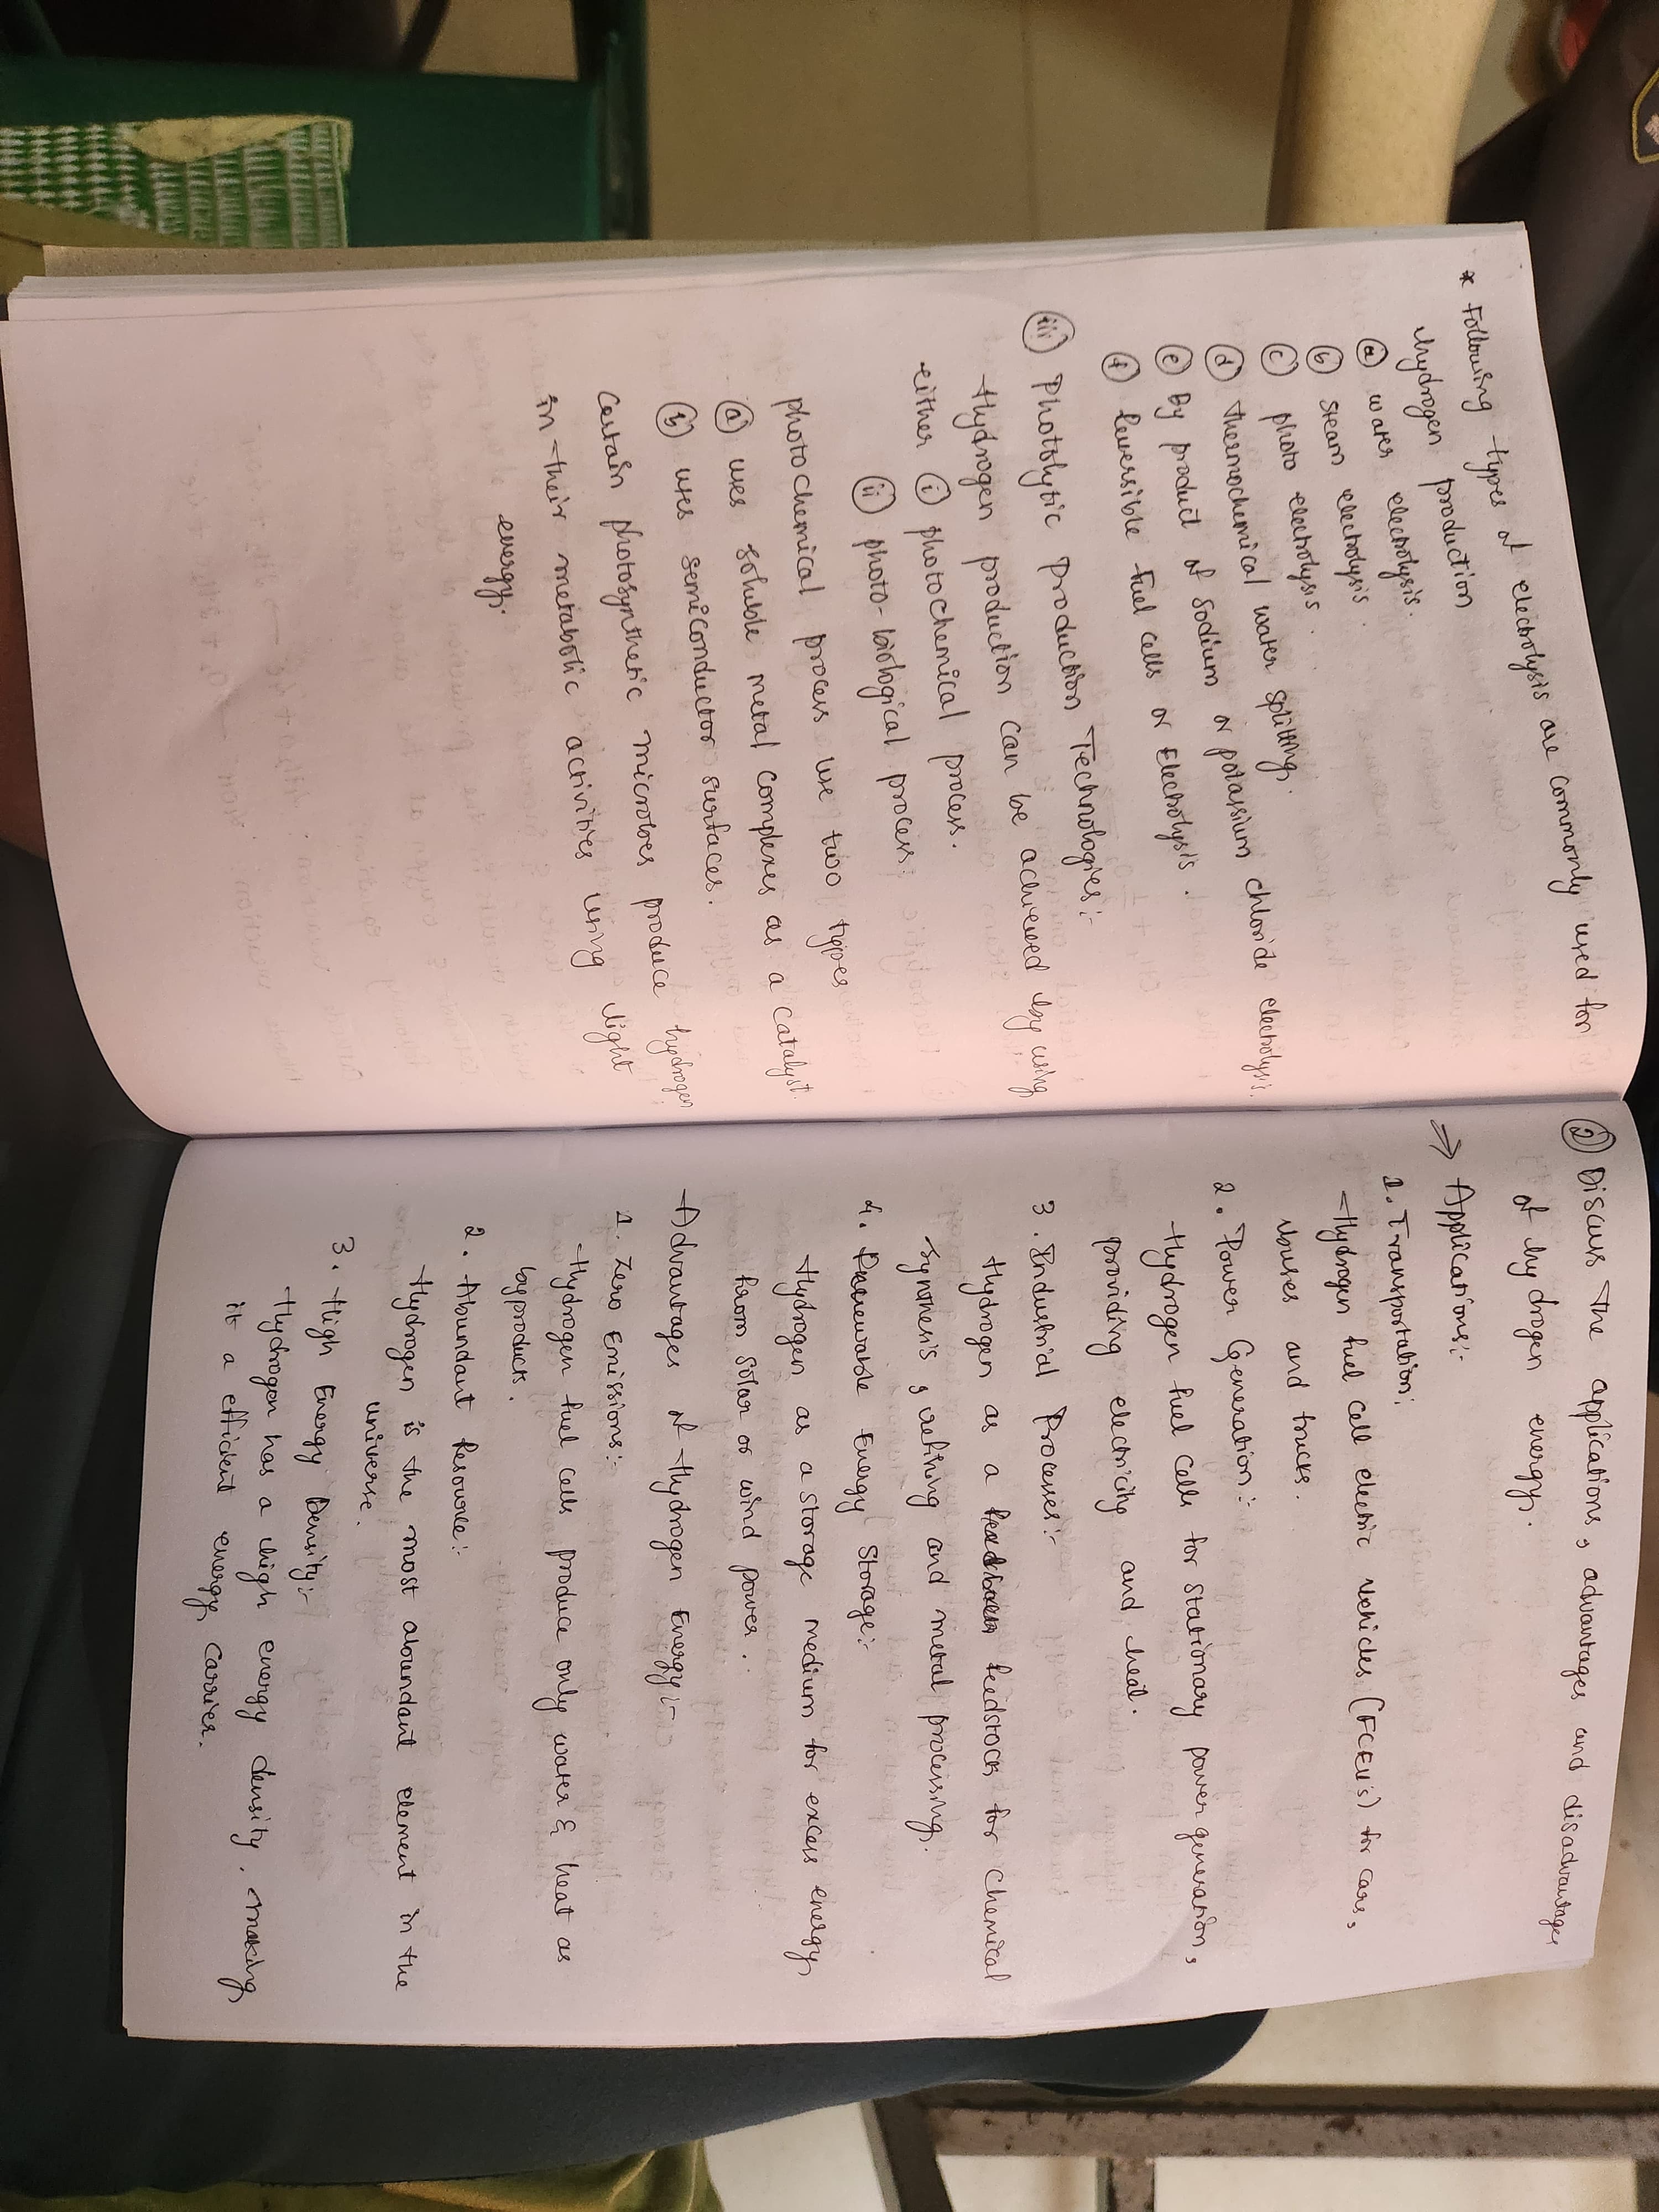 * Following types of electrolysis are commonly used for
hydrogen production
ⓐ water electrolysis.
ⓑ steam electrolysis.
ⓒ photo electrolysis.
ⓓ thermochemical water splitting.
ⓔ By product of sodium or potassium chloride electrolysis.
ⓕ Reversible Fuel cells or Electrolysis.
(iii) Photolytic Production Technologies:-
Hydrogen production can be achieved by using
either (i) photochemical process.
(ii) photo-biological process.
photochemical process use two types
ⓐ uses soluble metal complexes as a catalyst.
ⓑ uses semiconductor surfaces.
Certain photosynthetic microbes produce hydrogen
in their metabolic activities using light
energy.
② Discuss the applications, advantages and disadvantages
of hydrogen energy.
⇒ Applications:-
1. Transportation:
Hydrogen fuel cell electric vehicles (FCEV's) for cars,
buses and trucks.
2. Power Generation:-
Hydrogen fuel cells for stationary power generation,
providing electricity and heat.
3. Industrial Processes:-
Hydrogen as a feedstock for chemical
synthesis, refining and metal processing.
4. Renewable Energy Storage:-
Hydrogen as a storage medium for excess energy
from solar or wind power.
Advantages of Hydrogen Energy:-
1. Zero Emissions:-
Hydrogen fuel cells produce only water & heat as
byproducts.
2. Abundant Resource:-
Hydrogen is the most abundant element in the
universe.
3. High Energy Density:-
Hydrogen has a high energy density, making
it a efficient energy carrier.